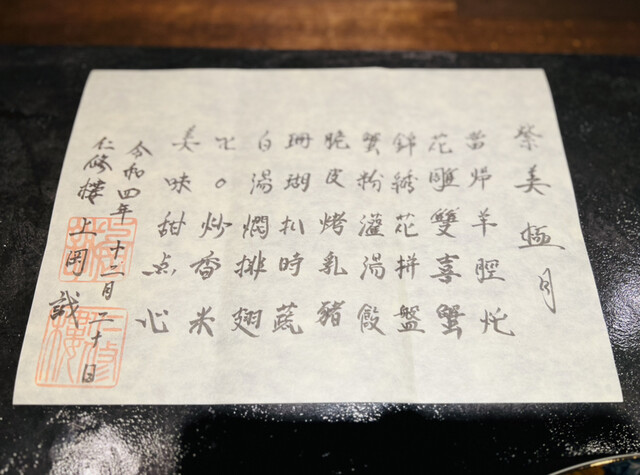 榮美極月
当帰羊脛灹
花雕雙喜蟹
錦綉花拼盤
蟹粉灌湯餃
脆皮烤乳豬
珊瑚扒時蔬
白湯燜排翅
炒香米
美味甜点心
令和四年十二月二十日
仁修樓 上岡 誠